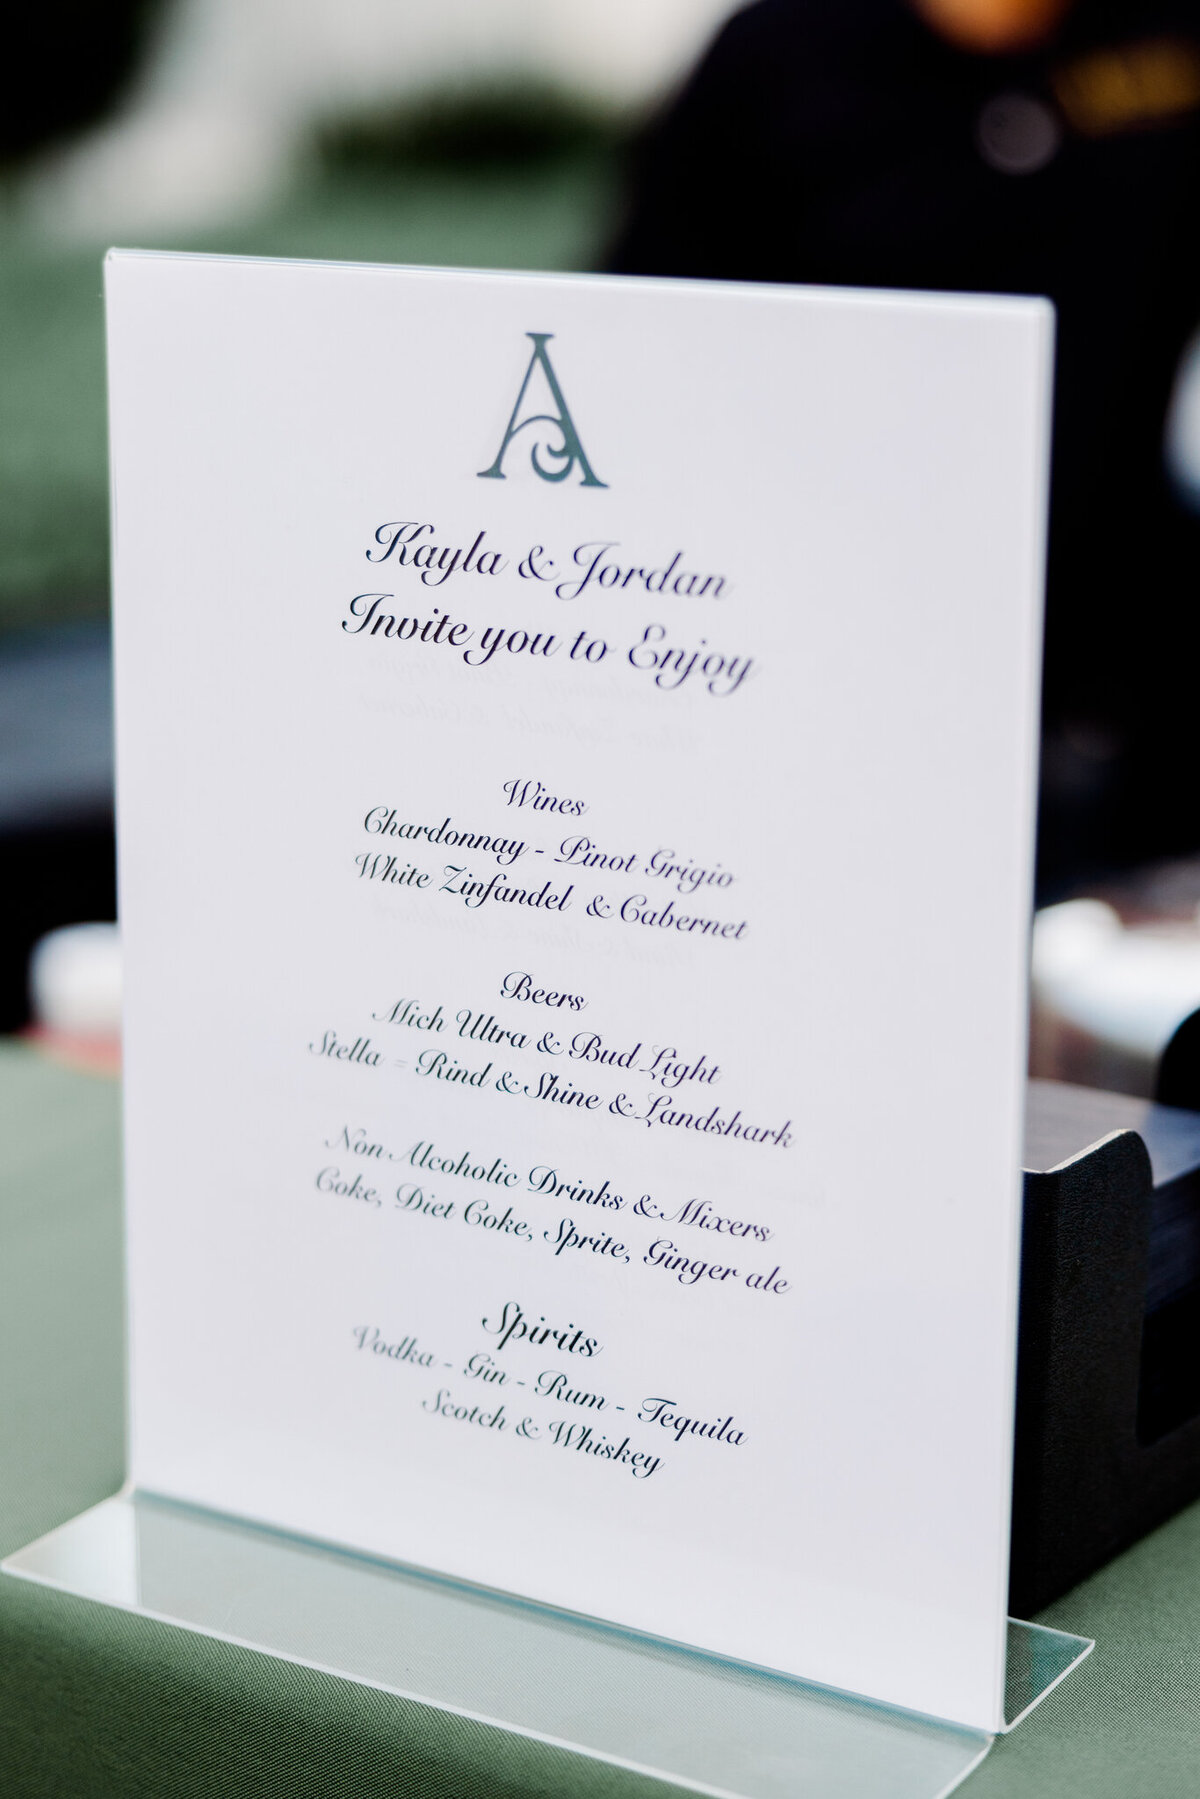 A
Kayla & Jordan
Invite you to Enjoy
Wines
Chardonnay - Pinot Grigio
White Zinfandel & Cabernet
Beers
Mich Ultra & Bud Light
Stella = Rind & Shine & Landshark
Non Alcoholic Drinks & Mixers
Coke, Diet Coke, Sprite, Ginger ale
Spirits
Vodka - Gin - Rum - Tequila
Scotch & Whiskey